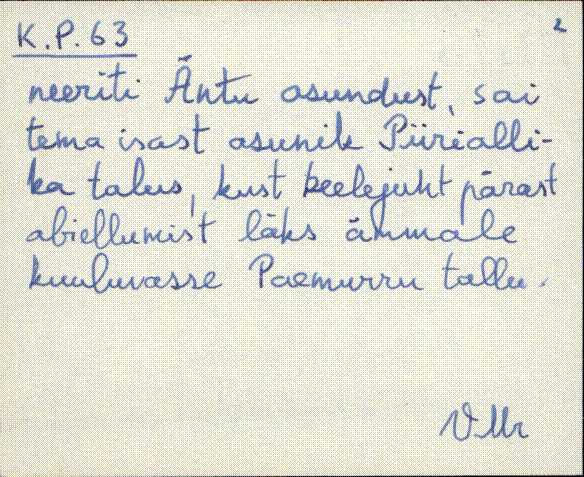 K.P. 63
2
neeriti Äntu asundust, sai
tema isast asunik Piirialli-
ka talus, kust keelejuht pärast
abiellumist läks ämmale
kuuluvasse Paemurru tallu.
VMr